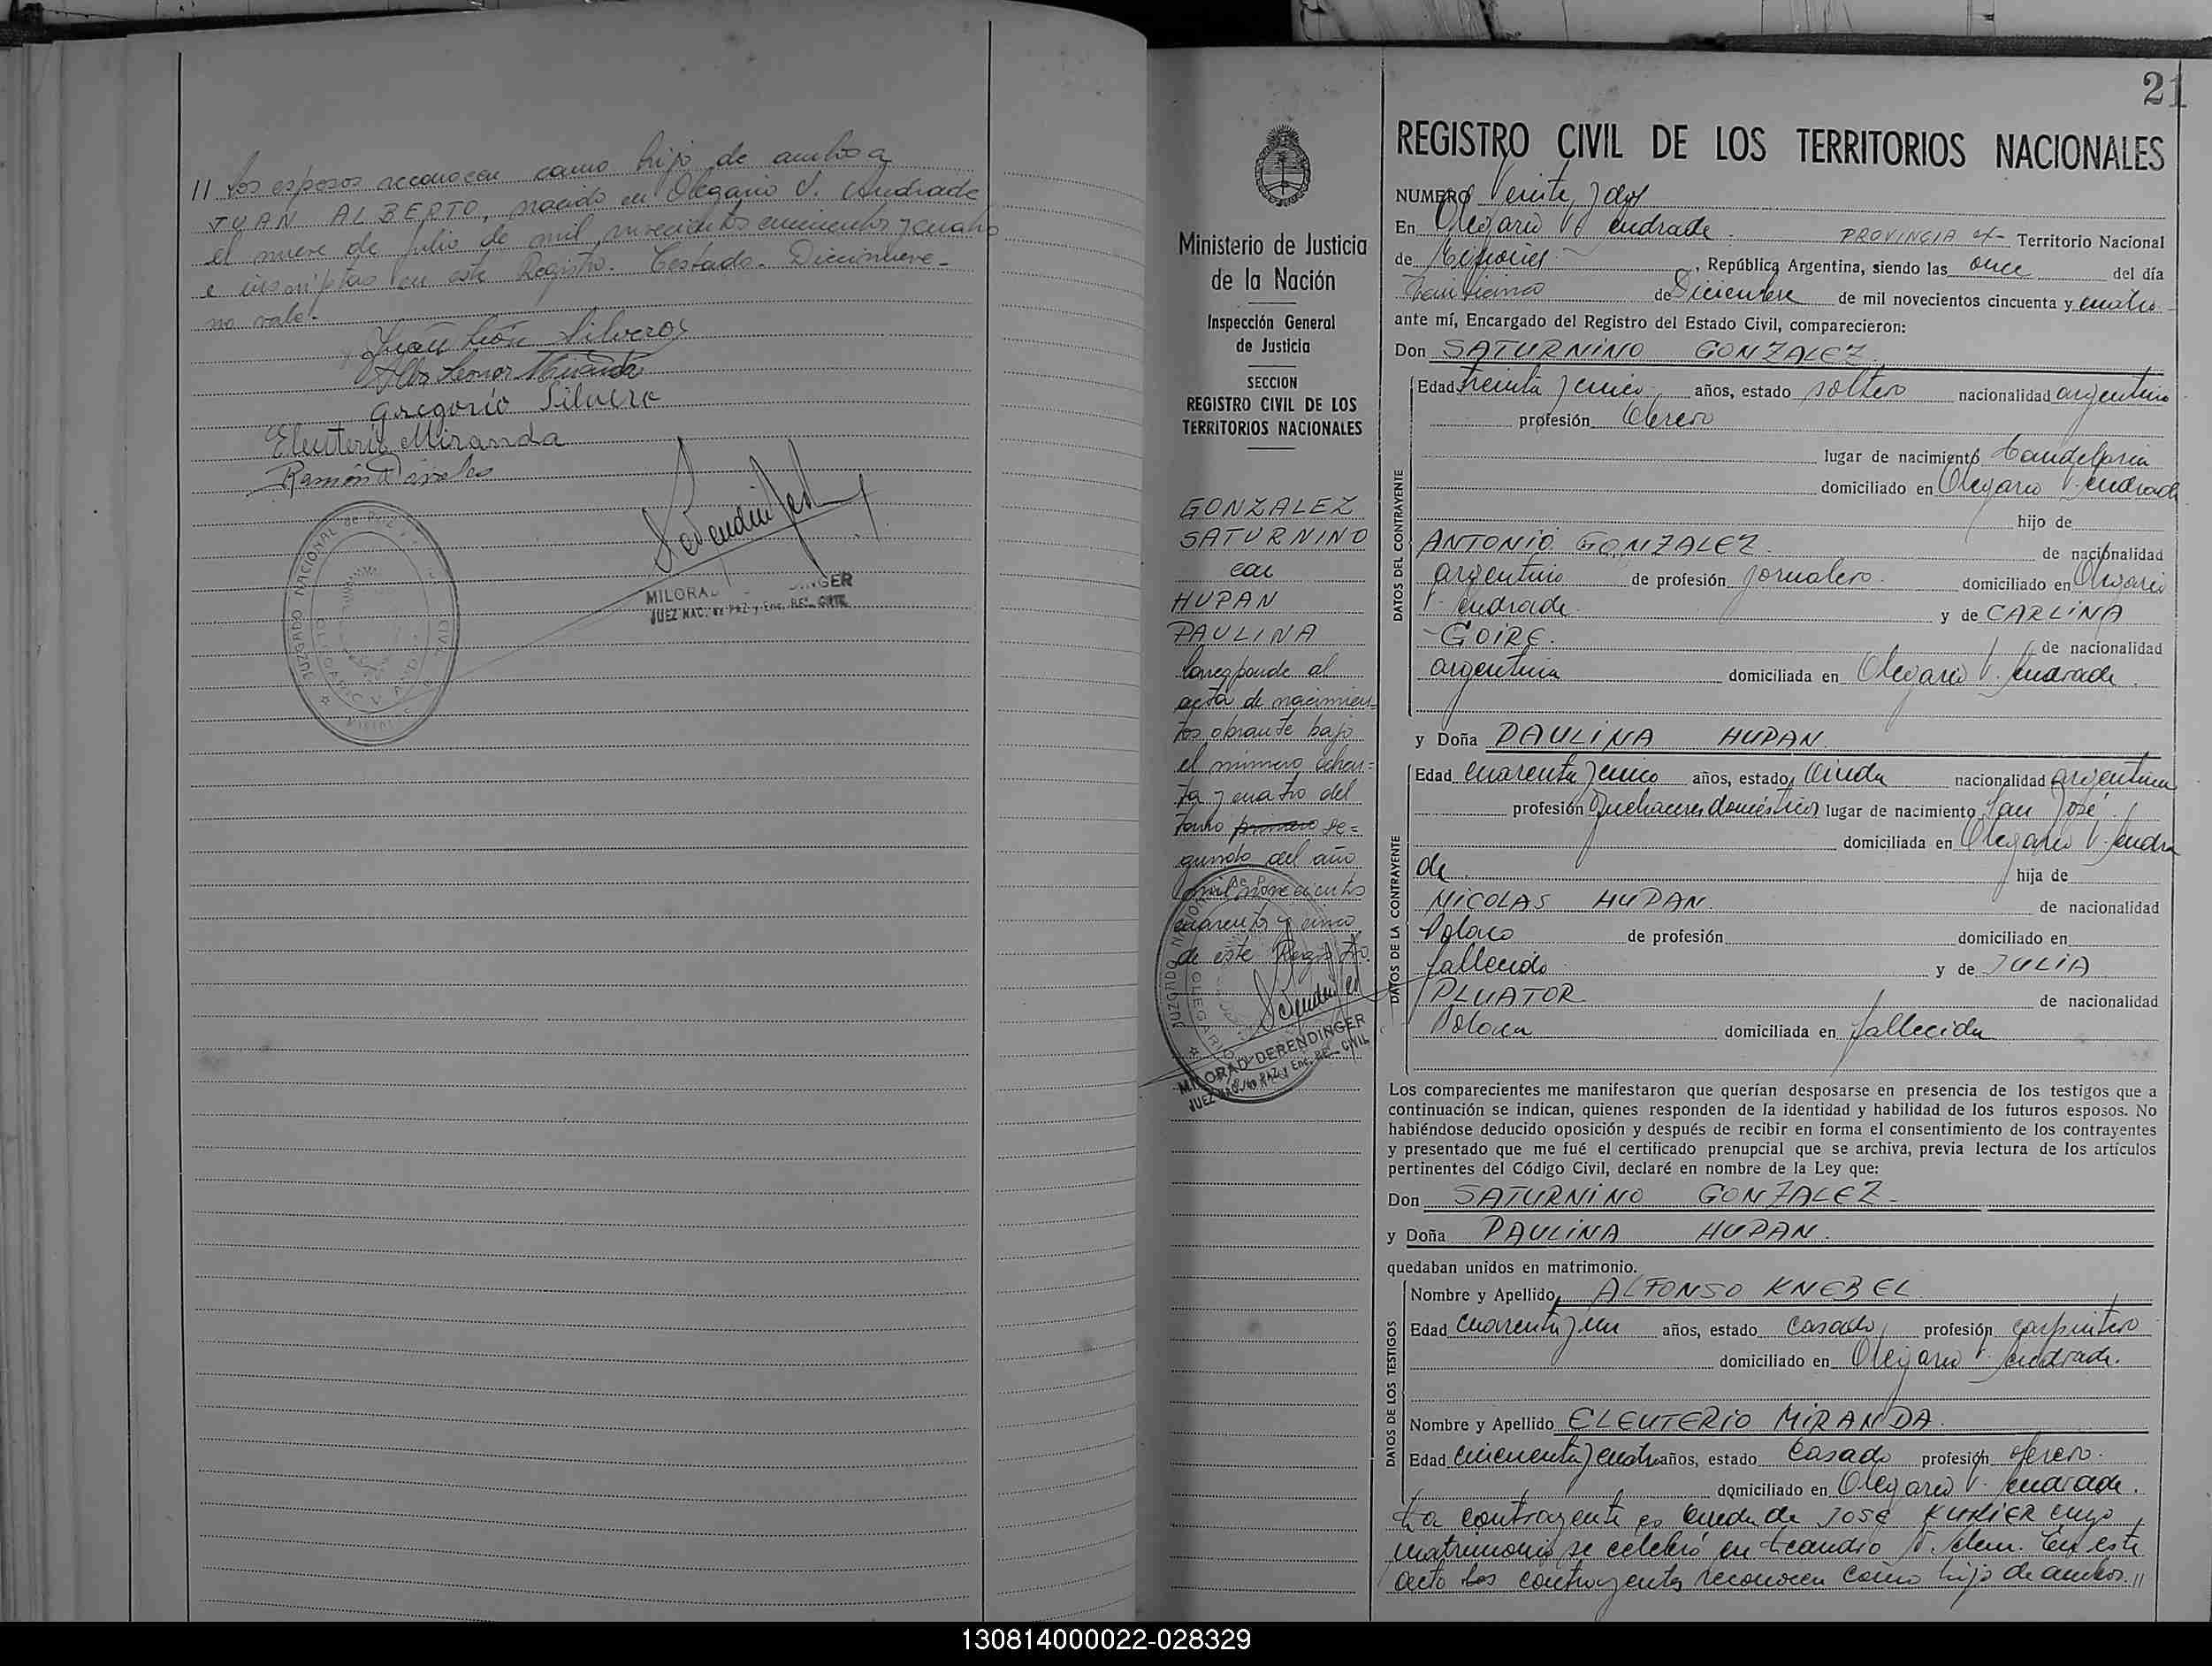 // Los esposos reconocen como hijo de ambos a
JUAN ALBERTO, nacido en Olegario V. Andrade
el nueve de julio de mil novecientos cincuenta y cuatro
e inscriptas en este Registro. Testado. Diecinueve-
no vale.
Juan León Silvero
Alba Leonor Miranda
Gregorio Silvero
Eleuterio Miranda
Ramón
JUZGADO NACIONAL de PAZ
CIVIL
OLEGARIO V. ANDRADE
Misiones
MILORAD DERENDINGER
JUEZ NAC. de PAZ y Enc. REG. CIVIL
Ministerio de Justicia
de la Nación
Inspección General
de Justicia
SECCION
REGISTRO CIVIL DE LOS
TERRITORIOS NACIONALES
GONZALEZ
SATURNINO
con
HUPAN
PAULINA
Corresponde al
acta de nacimien-
tos obrante bajo
el número ochen=
ta y cuatro del
tomo primero se=
gundo del año
mil novecientos
cuarenta y cinco
de este Registro.
JUZGADO NACIONAL
OLEGARIO
MILORAD DERENDINGER
JUEZ NAC. de PAZ y Enc. REG. CIVIL
21
REGISTRO CIVIL DE LOS TERRITORIOS NACIONALES
NUMERO Veinte y dos
En Olegario V. Andrade PROVINCIA Territorio Nacional
de Misiones , República Argentina, siendo las once del día
veinticinco de Diciembre de mil novecientos cincuenta y cuatro
ante mí, Encargado del Registro del Estado Civil, comparecieron:
Don SATURNINO GONZALEZ
DATOS DEL CONTRAYENTE
Edad treinta y cinco años, estado soltero nacionalidad argentino
profesión Obrero
lugar de nacimiento Candelaria
domiciliado en Olegario V. Andrade
hijo de
ANTONIO GONZALEZ de nacionalidad
argentino de profesión jornalero domiciliado en Olegario
V. Andrade y de CARLINA
GOIRE. de nacionalidad
argentina domiciliada en Olegario V. Andrade.
y Doña PAULINA HUPAN
DATOS DE LA CONTRAYENTE
Edad cuarenta y cinco años, estado Viuda nacionalidad argentina
profesión Quehaceres domésticos lugar de nacimiento San José
domiciliada en Olegario V. Andra
de hija de
NICOLAS HUPAN de nacionalidad
Polaco de profesión domiciliado en
fallecido y de JULIA
PLUATOR de nacionalidad
Polaca domiciliada en fallecida
Los comparecientes me manifestaron que querían desposarse en presencia de los testigos que a
continuación se indican, quienes responden de la identidad y habilidad de los futuros esposos. No
habiéndose deducido oposición y después de recibir en forma el consentimiento de los contrayentes
y presentado que me fué el certificado prenupcial que se archiva, previa lectura de los artículos
pertinentes del Código Civil, declaré en nombre de la Ley que:
Don SATURNINO GONZALEZ
y Doña PAULINA HUPAN.
quedaban unidos en matrimonio.
DATOS DE LOS TESTIGOS
Nombre y Apellido ALFONSO KNEBEL
Edad Cuarenta y un años, estado Casado profesión carpintero
domiciliado en Olegario V. Andrade.
Nombre y Apellido ELEUTERIO MIRANDA
Edad cincuenta y cuatro años, estado Casado profesión obrero.
domiciliado en Olegario V. Andrade.
La contrayente es viuda de JOSE cuyo
matrimonio se celebró en Leandro N. Alem. En este
acto los contrayentes reconocen como hijo de ambos. //
130814000022-028329